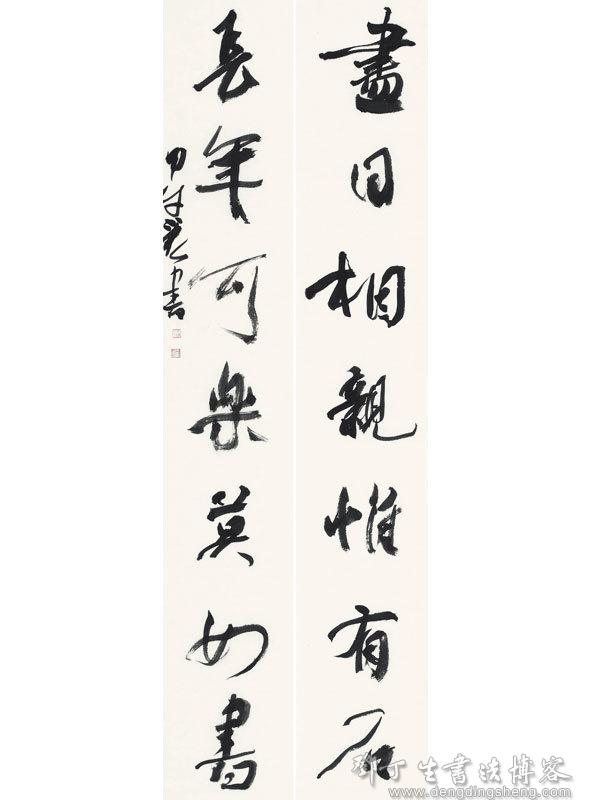 盡日相親惟有石
長年可樂莫如書
鄧丁生書法博客
www.dengdingsheng.com